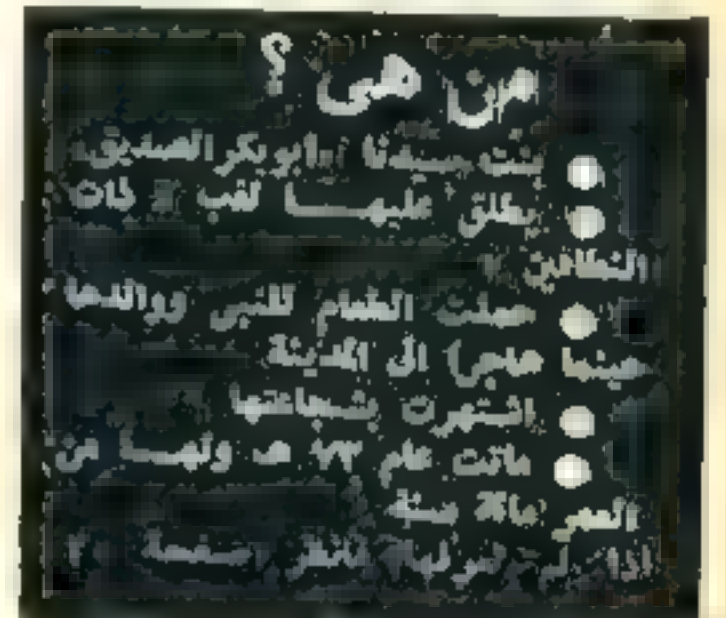 من هى ؟
بنت سيدنا ابو بكر الصديق
يطلق عليهـــا لقب " ذات
النطاقين "
حملت الطعام للنبى ووالدها
حينما هاجرا الى المدينة
اشتهرت بشجاعتها
ماتت عام ٧٣ هـ ولهـــا من
العمر سنة
اذا لم